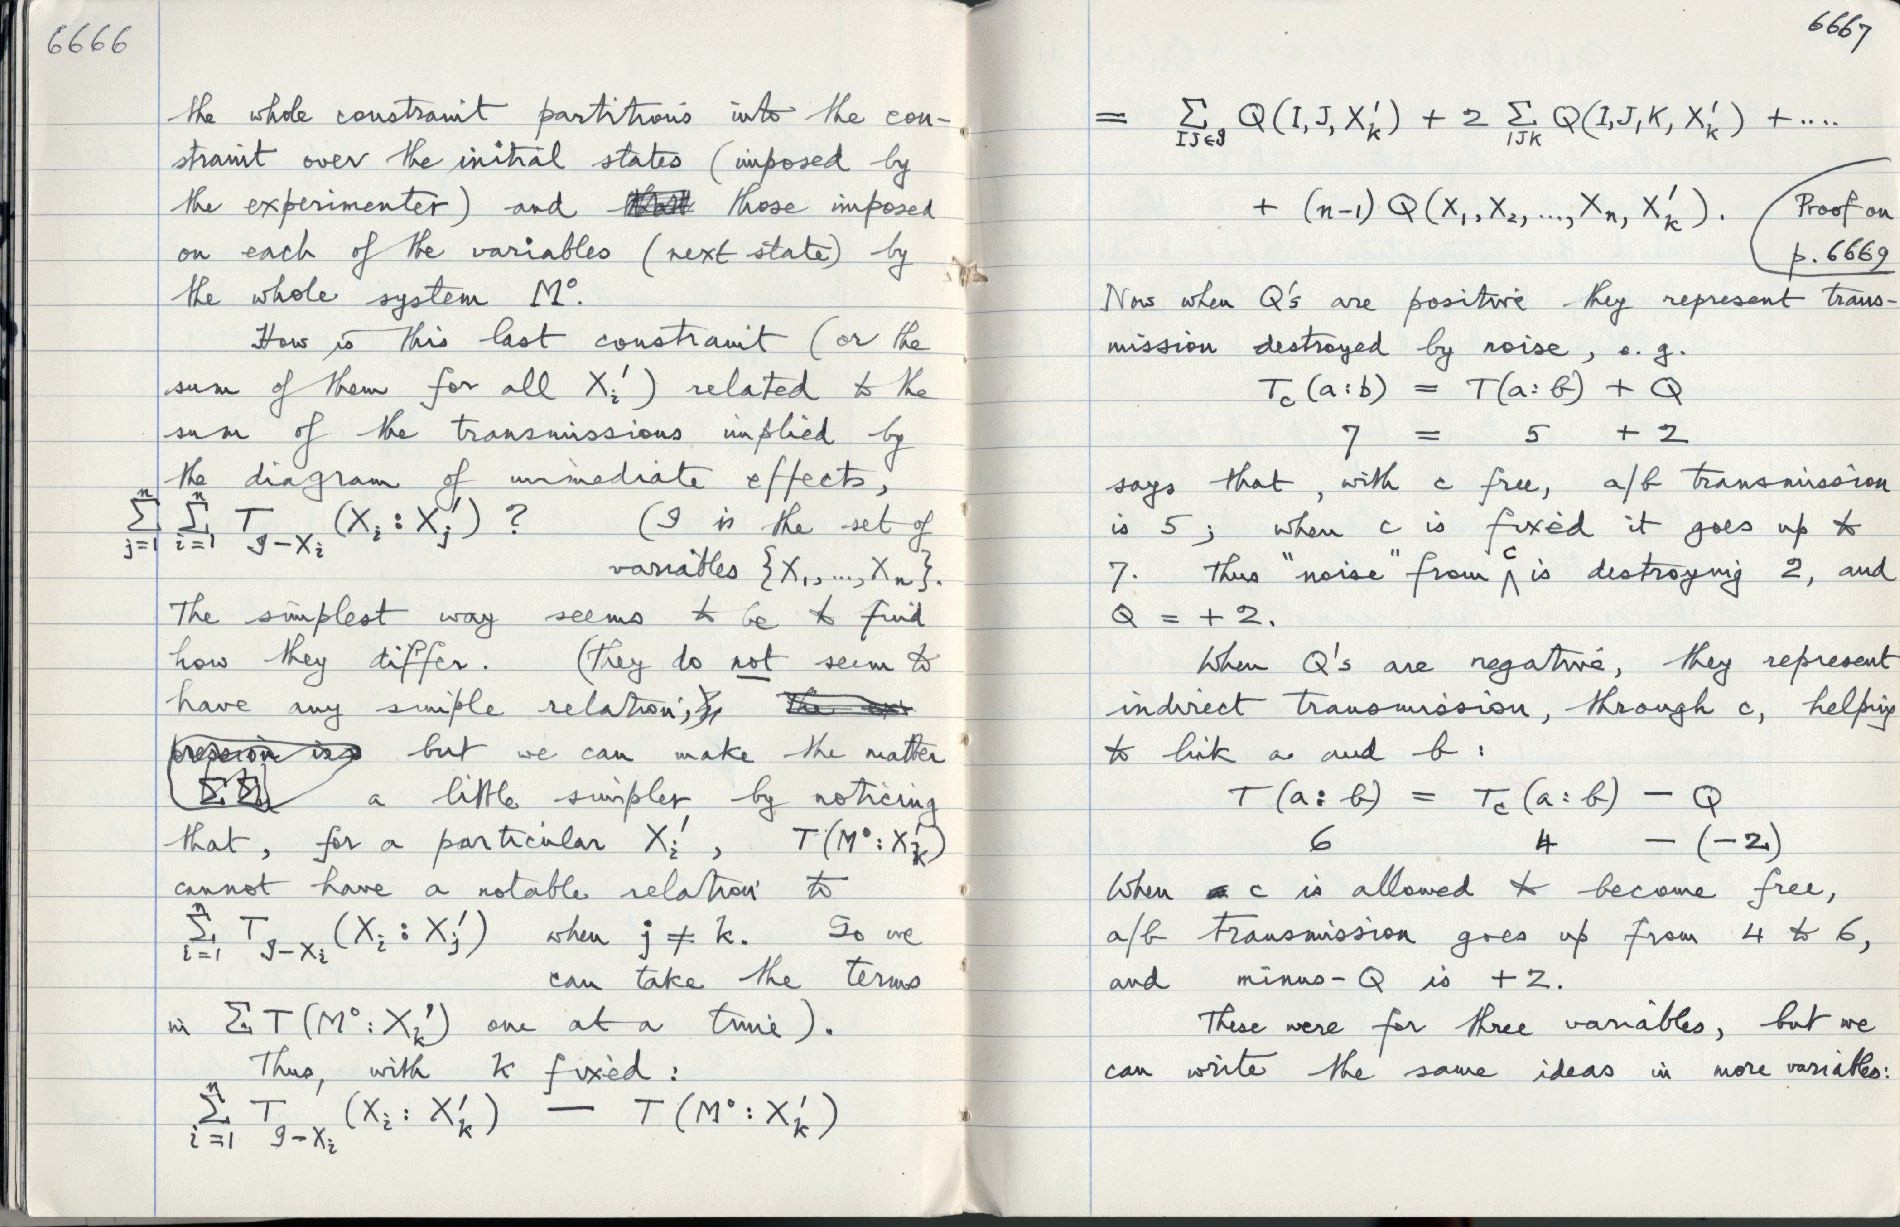 6666
the whole constraint partitions into the con-
straint over the initial states (imposed by
the experimenter) and those imposed
on each of the variables (next state) by
the whole system M°.
How is this last constraint (or the
sum of them for all Xi') related to the
sum of the transmissions implied by
the diagram of immediate effects,
n∑j=1 n∑i=1 T𝓘-Xi (Xi : Xj') ? (𝓘 is the set of
variables {X1, ..., Xn}.
The simplest way seems to be to find
how they differ. (They do not seem to
have any simple relation; the ex-
pression is but we can make the matter
∑ ∑ a little simpler by noticing
that, for a particular Xi', T(M° : Xk')
cannot have a notable relation to
n∑i=1 T𝓘-Xi (Xi : Xj') when j ≠ k. So we
can take the terms
in ∑ T(M° : Xk') one at a time).
Thus, with k fixed :
n∑i=1 T𝓘-Xi (Xi : Xk') — T(M° : Xk')
6667
= ∑IJ∈𝓘 Q(I, J, Xk') + 2 ∑IJK Q(I, J, K, Xk') + ....
+ (n-1) Q(X1, X2, ..., Xn, Xk').
Proof on
p. 6669
Now when Q's are positive they represent trans-
mission destroyed by noise, e.g.
Tc (a : b) = T(a : b) + Q
7 = 5 + 2
says that, with c free, a/b transmission
is 5 ; when c is fixed it goes up to
7. Thus "noise" from c is destroying 2, and
Q = + 2.
When Q's are negative, they represent
indirect transmission, through c, helping
to link a and b :
T (a : b) = Tc (a : b) - Q
6 4 - (-2)
When c is allowed to become free,
a/b transmission goes up from 4 to 6,
and minus-Q is +2.
These were for three variables, but we
can write the same ideas in more variables: